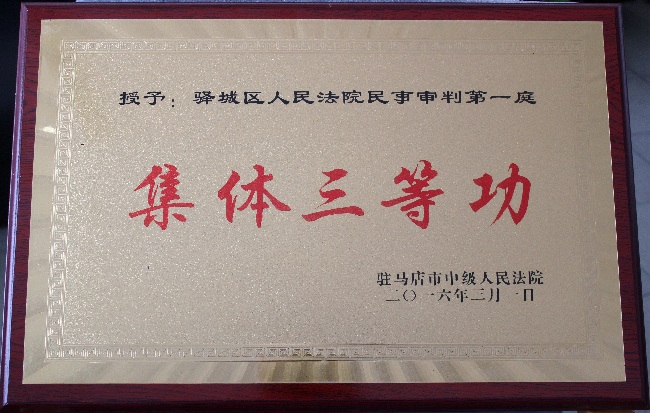 授予：驿城区人民法院民事审判第一庭
集体三等功
驻马店市中级人民法院
二〇一六年三月一日